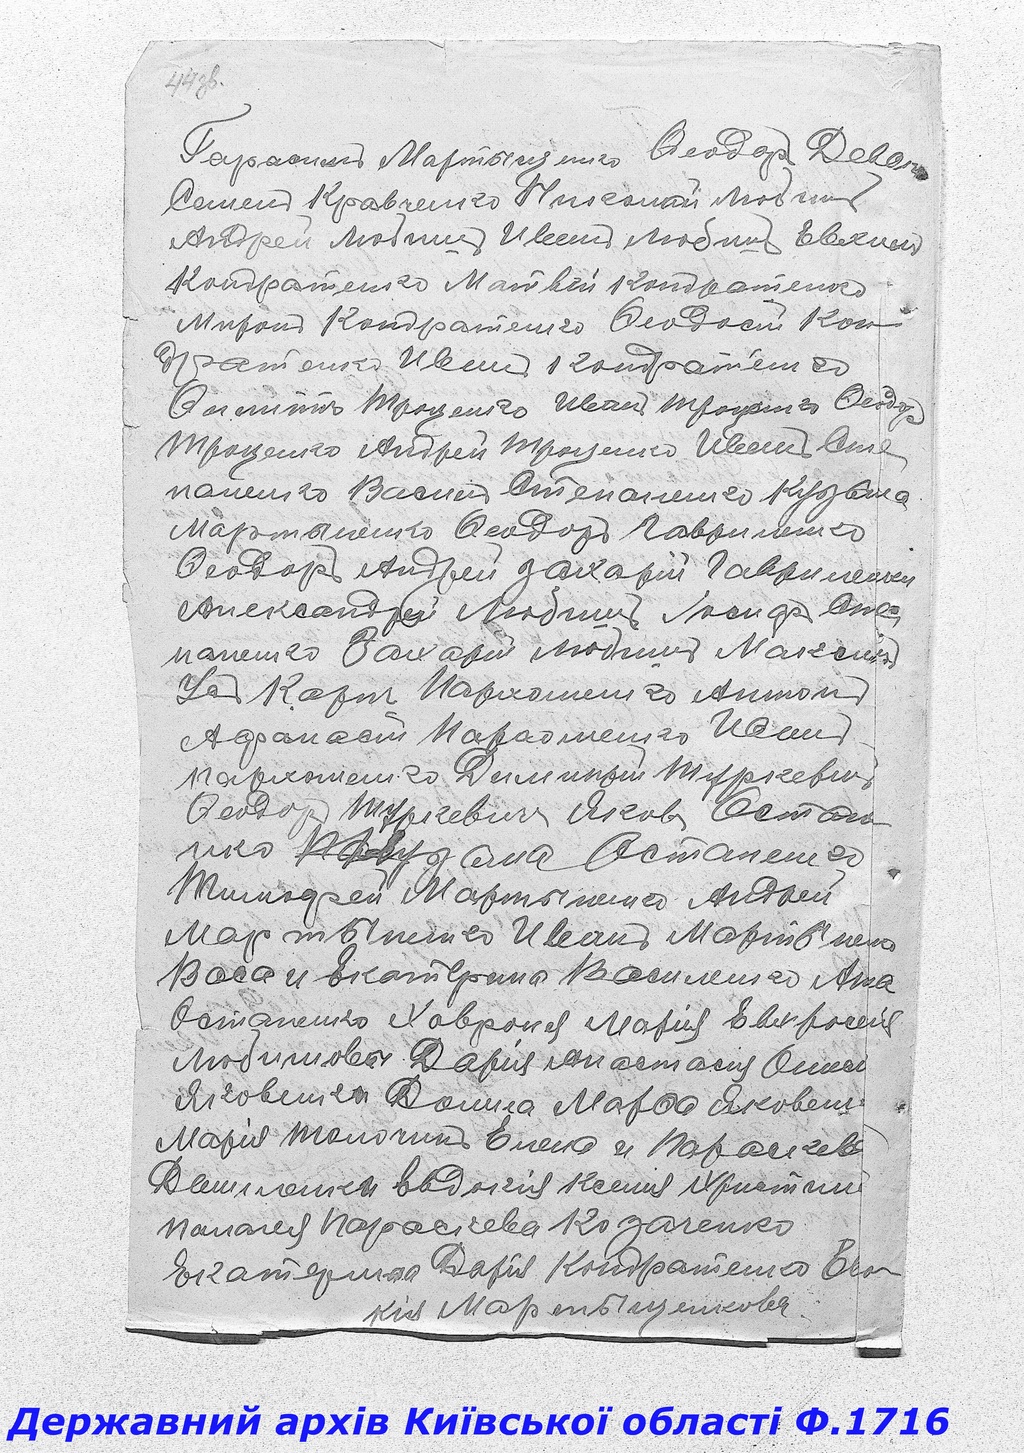 44зв.
Гарасим Мартыщенко Ѳеодор
Семен Кравченко Николай Любчиц
Андрей Любчиц Иван Любчиц Евхим
Кондратенко Матвій Кондратенко
Мирон Кондратенко Ѳеодосій Кон
дратенко Иван Кондратенко
Троценко Иван Троценко Ѳеодор
Троценко Андрей Троценко Иван Сте
паненко Васил Степаненко Кузьма
Мартыненко Ѳеодор Гавриленко
Ѳеодор Андрей Захарій Гавриленки
Александр Любчиц Іосиф Сте
паненко Захарій Любчиц Максим
Карп Пархоменко Антон
Афанасій Пархоменко Иван
Пархоменко Димитрій Туркевич
Ѳеодор Туркевич Яков Остапе
нко Остапенко
Тимофей Мартыненко Андрей
Мартыненко Иван Мартыненко
Васса и Екатерина Василенко Анна
Остапенко Ховроня Марія Евфросинія
Дарія Анастасія
Яковенки Домна Марфа Яковен
Марія Елена и Параскева
Даниленки Евдокія Ксенія Христина
Палагея Параскева Козаченко
Екатерина Дарія Кондратенко Евдо
кія Мартыщенкова.
Державний архів Київської області Ф.1716